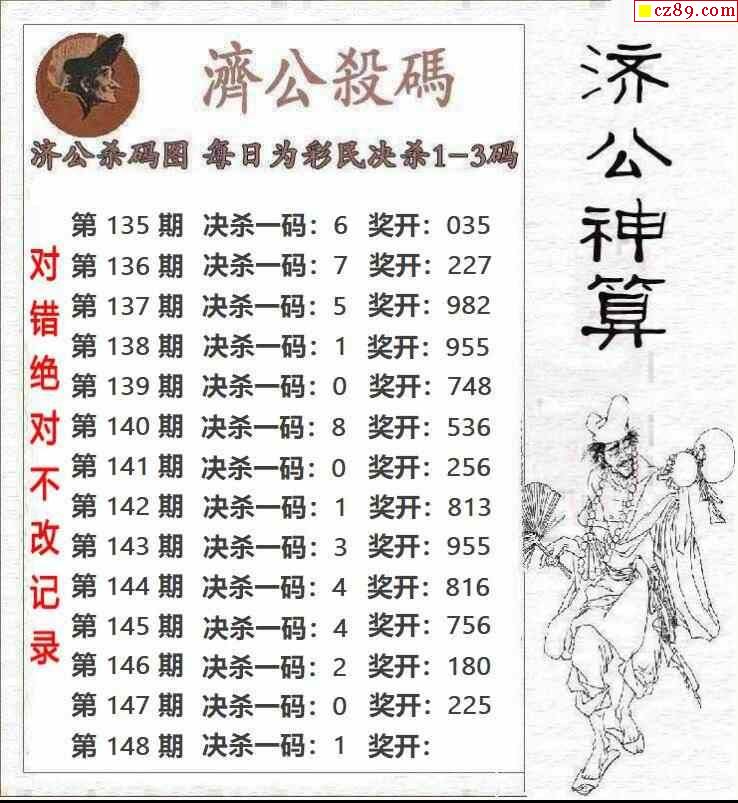 cz89.com
濟公殺碼
济公杀码图 每日为彩民决杀1-3码
济公神算
对错绝对不改记录
第 135 期 决杀一码：6 奖开：035
第 136 期 决杀一码：7 奖开：227
第 137 期 决杀一码：5 奖开：982
第 138 期 决杀一码：1 奖开：955
第 139 期 决杀一码：0 奖开：748
第 140 期 决杀一码：8 奖开：536
第 141 期 决杀一码：0 奖开：256
第 142 期 决杀一码：1 奖开：813
第 143 期 决杀一码：3 奖开：955
第 144 期 决杀一码：4 奖开：816
第 145 期 决杀一码：4 奖开：756
第 146 期 决杀一码：2 奖开：180
第 147 期 决杀一码：0 奖开：225
第 148 期 决杀一码：1 奖开：